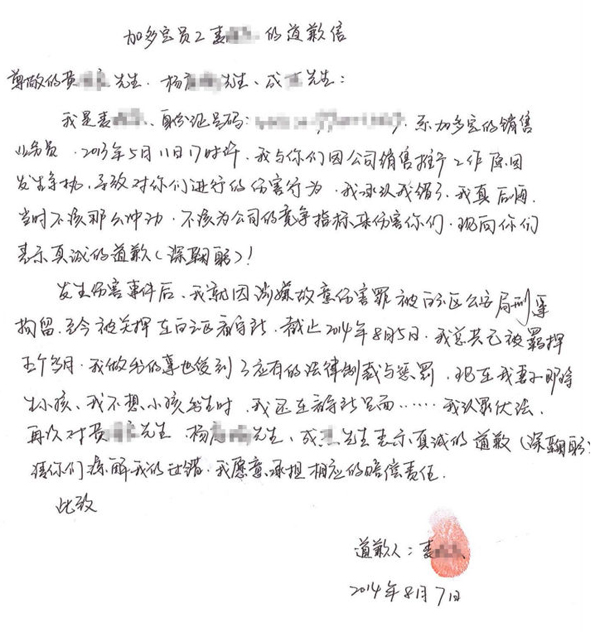 加多宝员工麦 的道歉信
尊敬的黄 先生、杨 先生、成 先生：
我是麦 、身份证号码： ，系加多宝的销售
业务员，2013年5月11日17时许，我与你们因公司销售推广工作原因
发生争执，导致对你们进行的伤害行为，我承认我错了，我真后悔，
当时不该那么冲动，不该为公司的竞争指标来伤害你们，现向你们
表示真诚的道歉（深鞠躬）！
发生伤害事件后，我就因涉嫌故意伤害罪被白云区公安局刑事
拘留，至今被关押在白云区看守所，截止2014年8月5日，我总共已被羁押
五个多月，我做错的事也受到了应有的法律制裁与惩罚，现在我妻子即将
生小孩，我不想小孩出生时，我还在看守所里面……我认罪伏法，
再次对黄 先生、杨 先生、成 先生表示真诚的道歉（深鞠躬）
请你们谅解我的过错，我愿意承担相应的赔偿责任.
此致
道歉人：麦
2014年8月7日